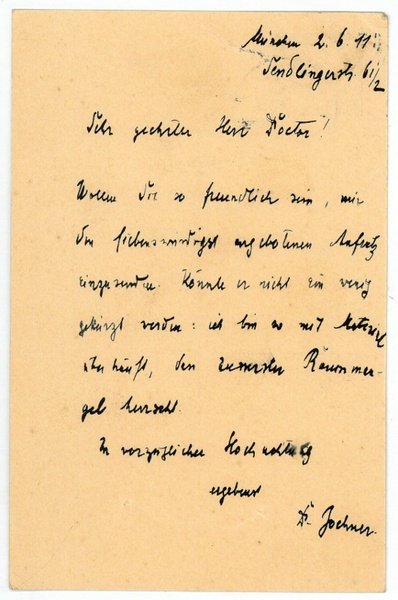 München 2. 6. 11
Sendlingerstr. 61/2
Sehr geehrter Herr Doctor!
Wollen Sie so freundlich sein, mir
den liebenswürdigst angebotenen Aufsatz
einzusenden. Könnte er nicht ein wenig
gekürzt werden: ich bin so mit Material
überhäuft, dass äusserster Raumman-
gel herrscht.
In vorzüglicher Hochachtung
ergebenst
Dr. Jochner.